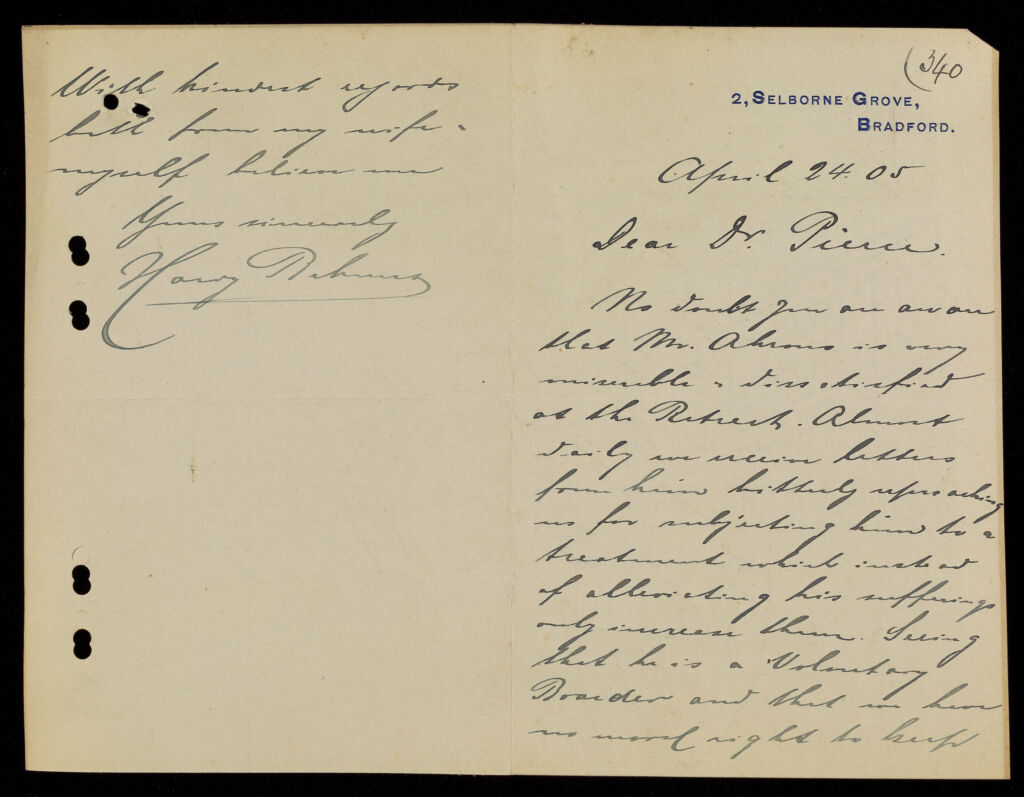 With kindest regards
both from my wife &
myself believe me
Yours sincerely
(340
2, SELBORNE GROVE,
BRADFORD.
April 24. 05
Dear Dr. Pierce.
No doubt you are aware
that Mr. Ahrons is very
miserable & dissatisfied
at the Retreat. Almost
daily we receive letters
from him bitterly reproaching
us for subjecting him to a
treatment which instead
of alleviating his sufferings
only increase them. Seeing
that he is a Voluntary
Boarder and that we have
no moral right to keep